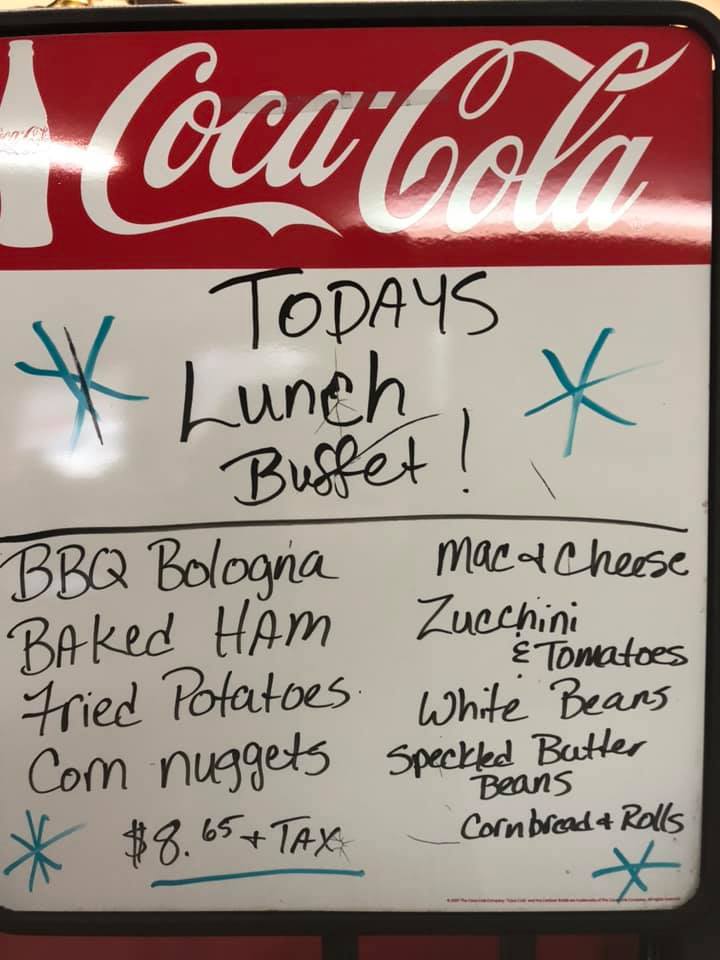 Coca-Cola
TODAYS
Lunch
Buffet!
BBQ Bologna
BAKed HAM
Fried Potatoes
Corn nuggets
$8.65 + TAX
Mac & Cheese
Zucchini
& Tomatoes
White Beans
Speckled Butter
Beans
Cornbread & Rolls